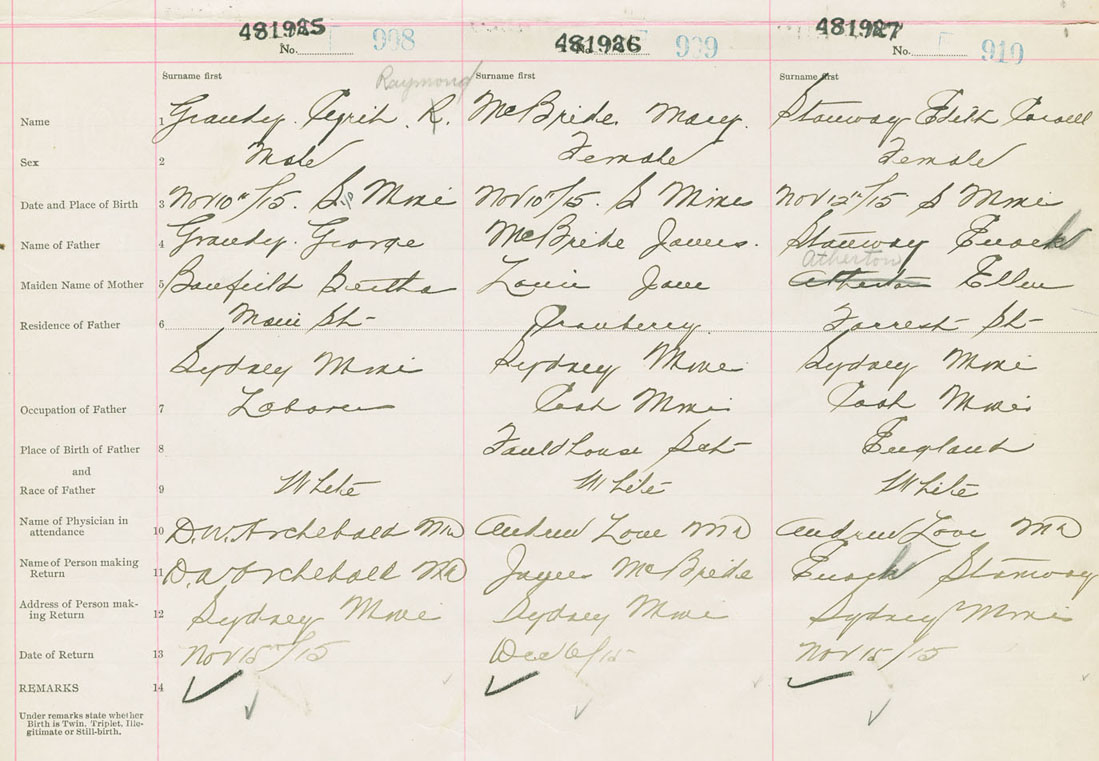 481925 481926 481927
No. 908 909 No. 910
Surname first Raymond Surname first Surname first
Name 1 Grandy. R. McBride. Mary. Stanway Edith
Sex 2 Male Female Female
Date and Place of Birth 3 Nov 10th/15. S. Mines Nov 10th/15. S Mines Nov 12th/15 S Mines
Name of Father 4 Grandy. George McBride James. Stanway Enock
Atherton
Maiden Name of Mother 5 Banfield Bertha Jane Atherton Ellen
Residence of Father 6 Main St Cranberry Forrest St
Sydney Mines Sydney Mines Sydney Mines
Occupation of Father 7 Laborer Coal Mines Coal Mines
Place of Birth of Father 8 Fauldhouse Sct England
and
Race of Father 9 White White White
Name of Physician in
attendance 10 D.W. Archebald MD Andrew Love MD Andrew Love MD
Name of Person making
Return 11 D.W Archebald MD James McBride Enock Stanway
Address of Person mak-
ing Return 12 Sydney Mines Sydney Mines Sydney Mines
Date of Return 13 Nov 15th/15 Dec 6/15 Nov 15/15
REMARKS 14
Under remarks state whether
Birth is Twin, Triplet, Ille-
gitimate or Still-birth.